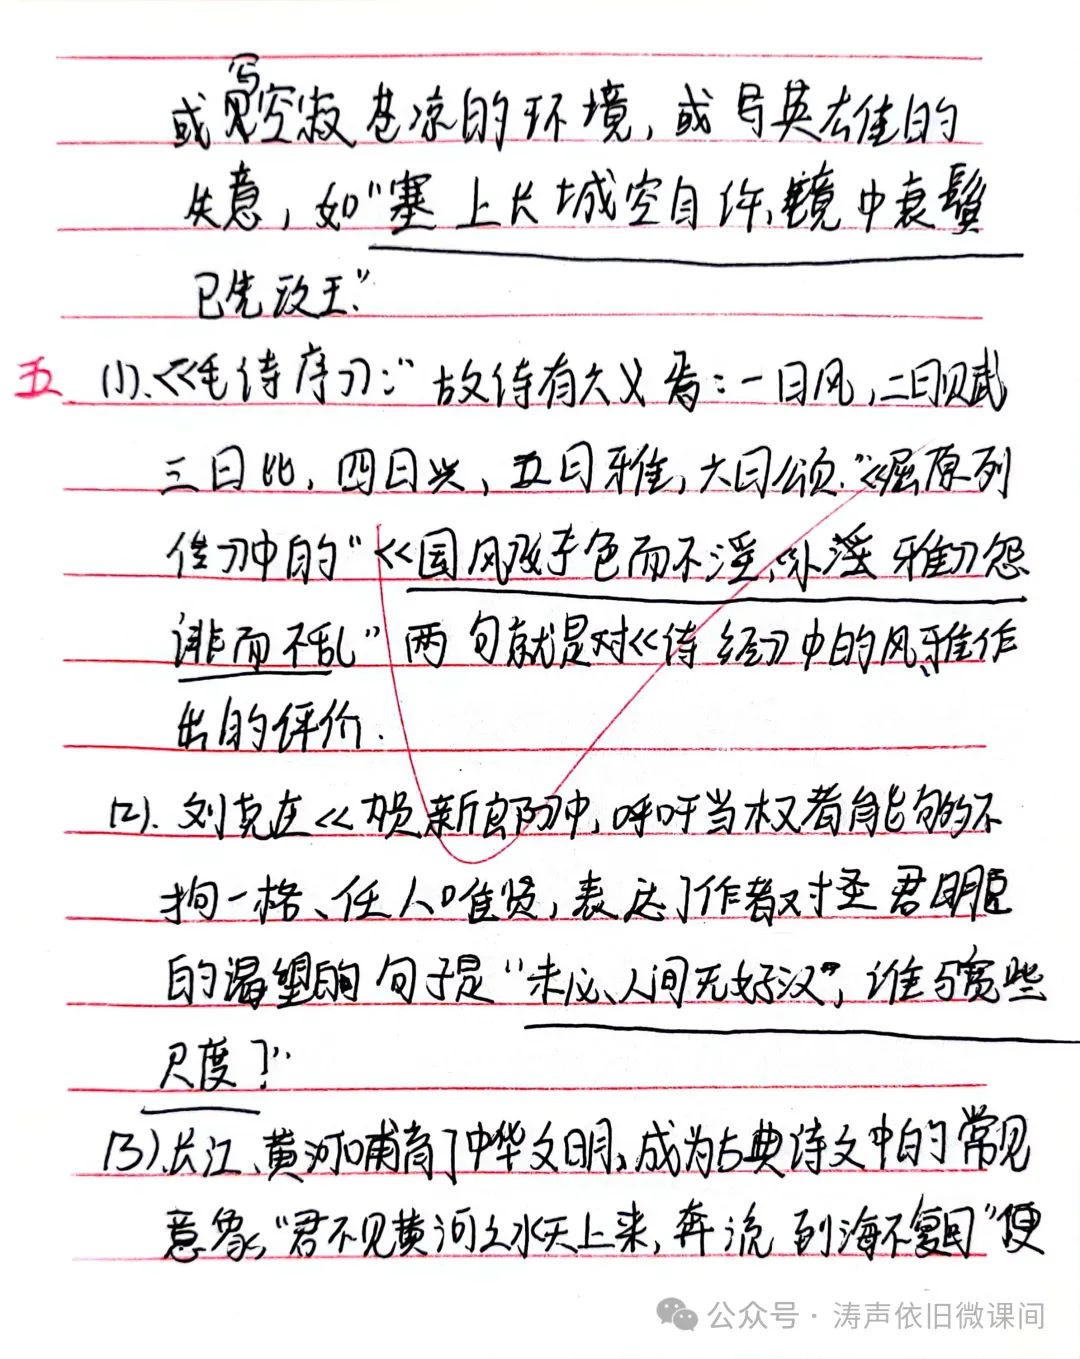 或写空寂苍凉的环境，或写英雄的
失意，如“塞上长城空自许，镜中衰鬓
已先斑”。
五 (1).《毛诗序》：“故诗有六义焉：一曰风，二曰赋
三曰比，四曰兴，五曰雅，六曰颂.”《屈原列
传》中的“《国风》好色而不淫，《小雅》怨
诽而不乱”两句就是对《诗经》中的风、雅作
出的评价.
(2). 刘克庄《贺新郎》中，呼吁当权者能够不
拘一格、任人唯贤，表达了作者对圣君明臣
的渴望的句子是“未必人间无好汉”，谁与宽些
尺度？”
(3).长江、黄河哺育了中华文明，成为古典诗文中的常见
意象，“君不见黄河之水天上来，奔流到海不复回”便
公众号·涛声依旧微课间